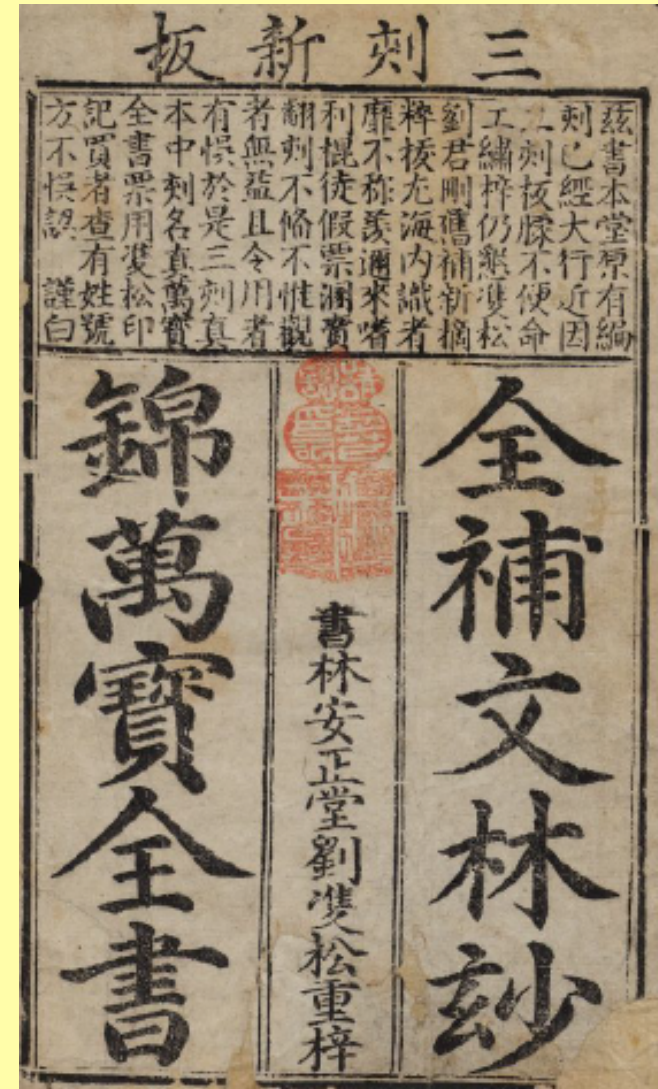 三刻新板
茲書本堂原有編
刻已經大行近因
二刻板朦不便命
工繡梓仍懇雙松
劉君刪舊補新摘
粹拔尤海內識者
靡不称羨邇來嗜
利棍徒假票溷實
翻刻不備不惟觀
者無益且令用者
有悮於是三刻真
本中刻名真萬寶
全書票用雙松印
記買者查有姓號
方不悞認 謹白
全補文林玅
書林安正堂劉雙松重梓
錦萬寶全書